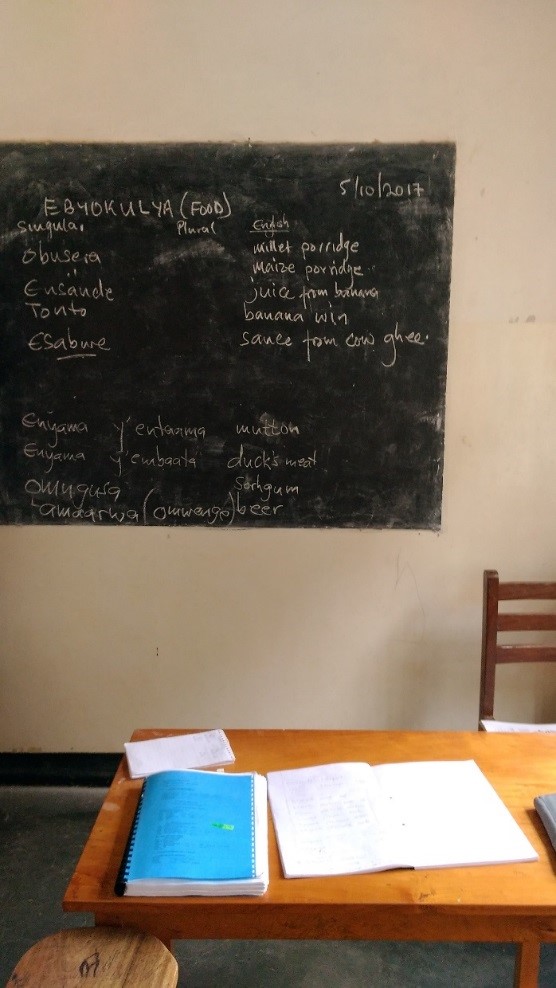 5/10/2017
EBYOKULYA (FOOD)
Singular Plural English
Obusera millet porridge
" maize porridge
Ensande juice from banana
Tonto banana win
Esabwe sauce from cow ghee.
Enyama y'entaama mutton
Enyama y'embaata duck's meat
Omugusa Sorhgum
amaarwa (omwenge) beer